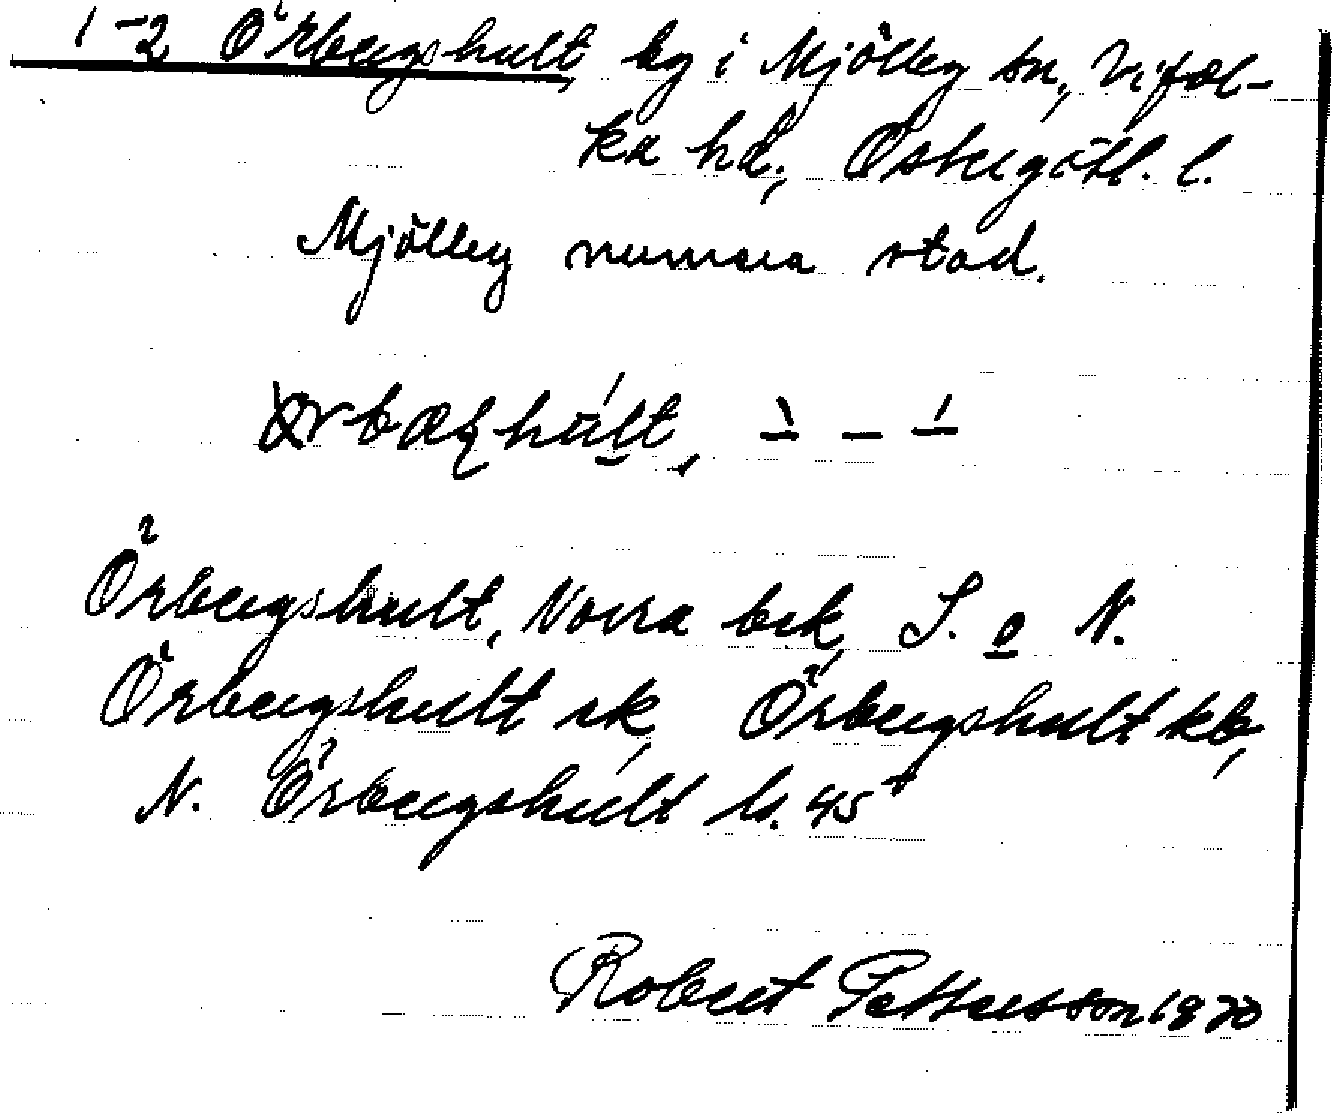 1-2 Örbergshult, by i Mjölby sn, Vifol-
ka hd, Östergötl. l.
Mjölby numera stad.
Örbergshult, Norra bek, S. o N.
Örbergshult ek, Örbergshult kb,
N. Örbergshult ls. 45
Robert Pettersson 1970